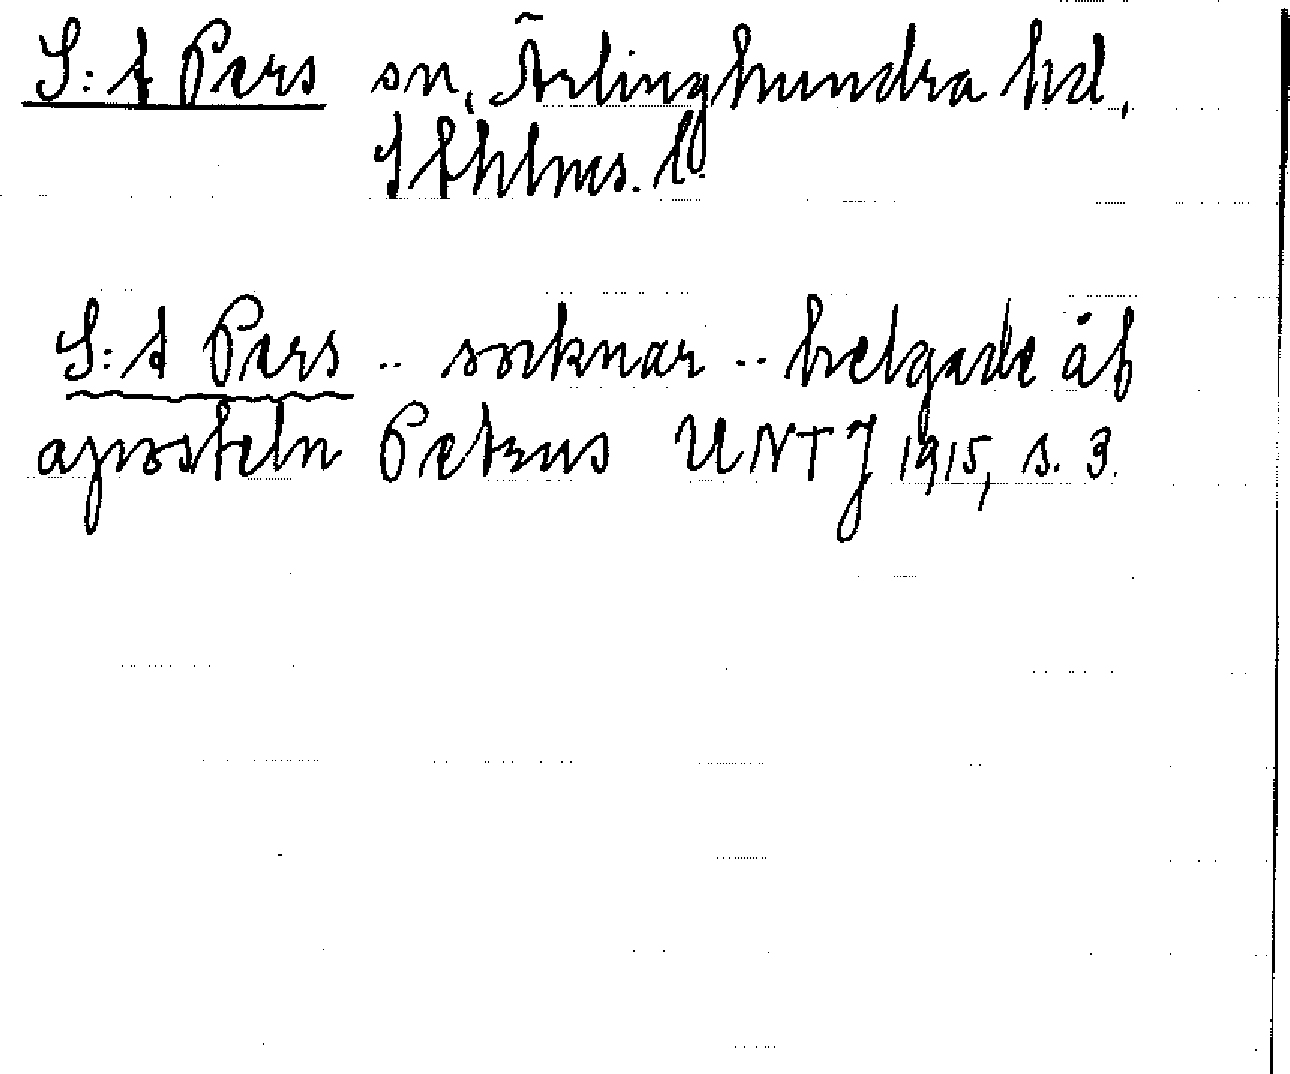 S:t Pers sn, Ärlinghundra hd,
Sthlms. l.
S:t Pers .. socknar .. helgade åt
aposteln Petrus UNTJ 1915, s. 3.